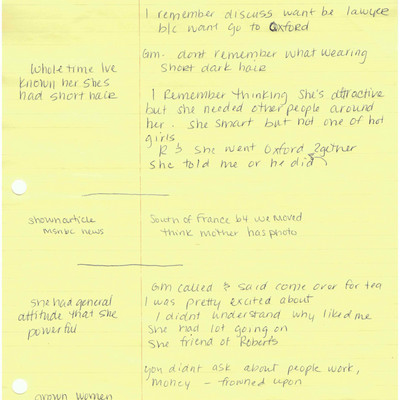 I remember discuss want be lawyer
b/c want go to Oxford
Gm- dont remember what wearing
short dark hair
Whole time Ive
known her shes
had short hair
I Remember thinking she's attractive
but she needed other people around
her. she smart but not one of hot
girls
R & she went Oxford 2gether
she told me or he did
show article
msnbc news
South of France by we moved
think mother has photo
she had general
attitude that she
powerful
GM called & said come over for tea
I was pretty excited about
I didnt understand why liked me
She had lot going on
She friend of Roberts
you didnt ask about people work,
money - frowned upon
grown women